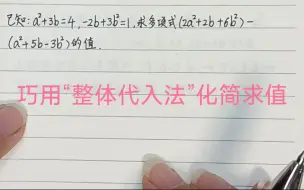 已知:a²+3b=4,-2b+3b²=1.求多项式(2a²+2b+6b²)-
(a²+5b-3b²)的值.
巧用“整体代入法”化简求值